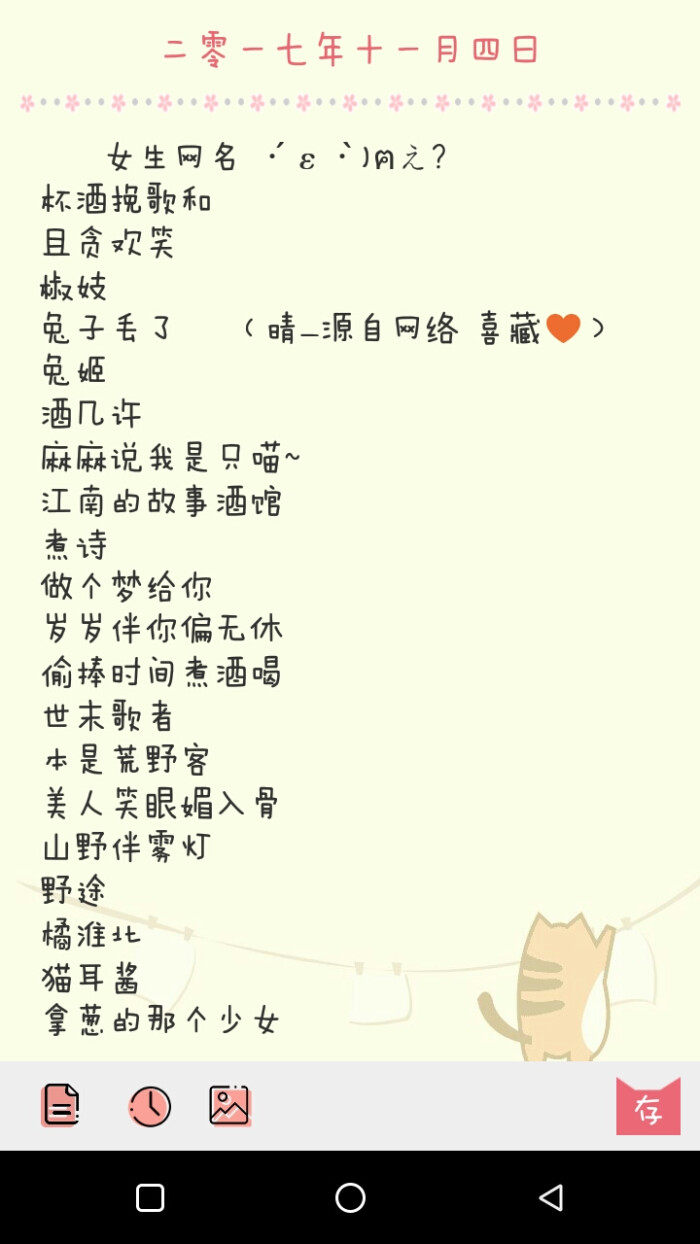 二零一七年十一月四日
女生网名 ･´ε ･`)ฅえ?
杯酒挽歌和
且贪欢笑
椒妓
兔子毛了 （晴_源自网络 喜藏🧡）
兔姬
酒几许
麻麻说我是只喵~
江南的故事酒馆
煮诗
做个梦给你
岁岁伴你偏无休
偷捧时间煮酒喝
世末歌者
本是荒野客
美人笑眼媚入骨
山野伴雾灯
野途
橘淮北
猫耳酱
拿葱的那个少女
存